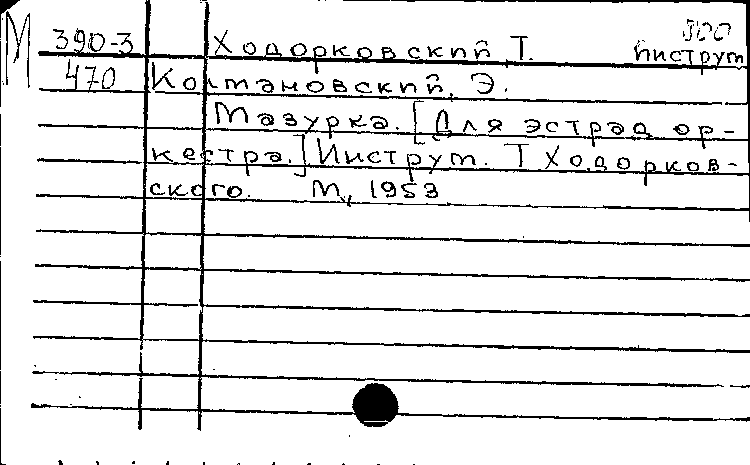 М 390-3 Ходорковский, Т. инструм
470 Колмановский, Э.
Мазурка. [Для эстрад. ор-
кестра.] Инструм. Т Ходорков-
ского. М., 1953